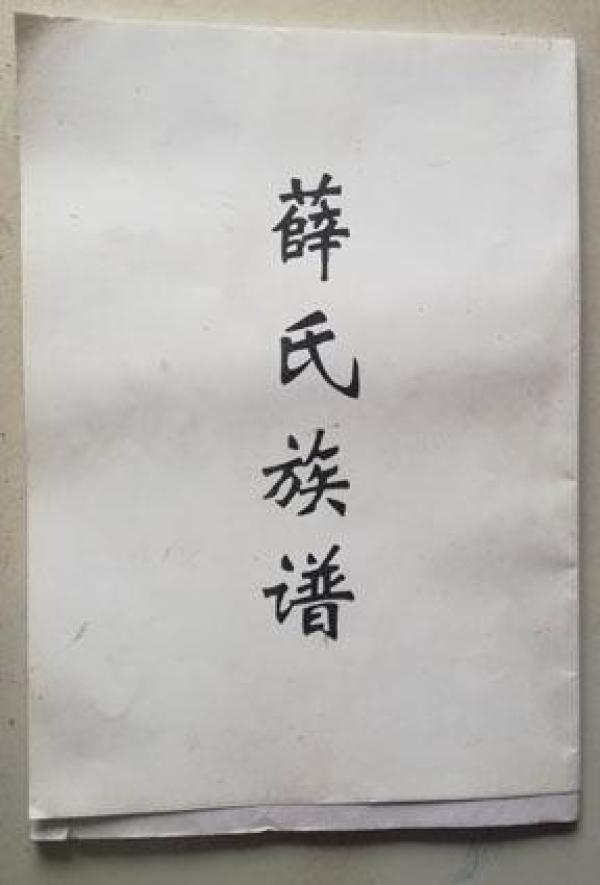 薛氏族谱